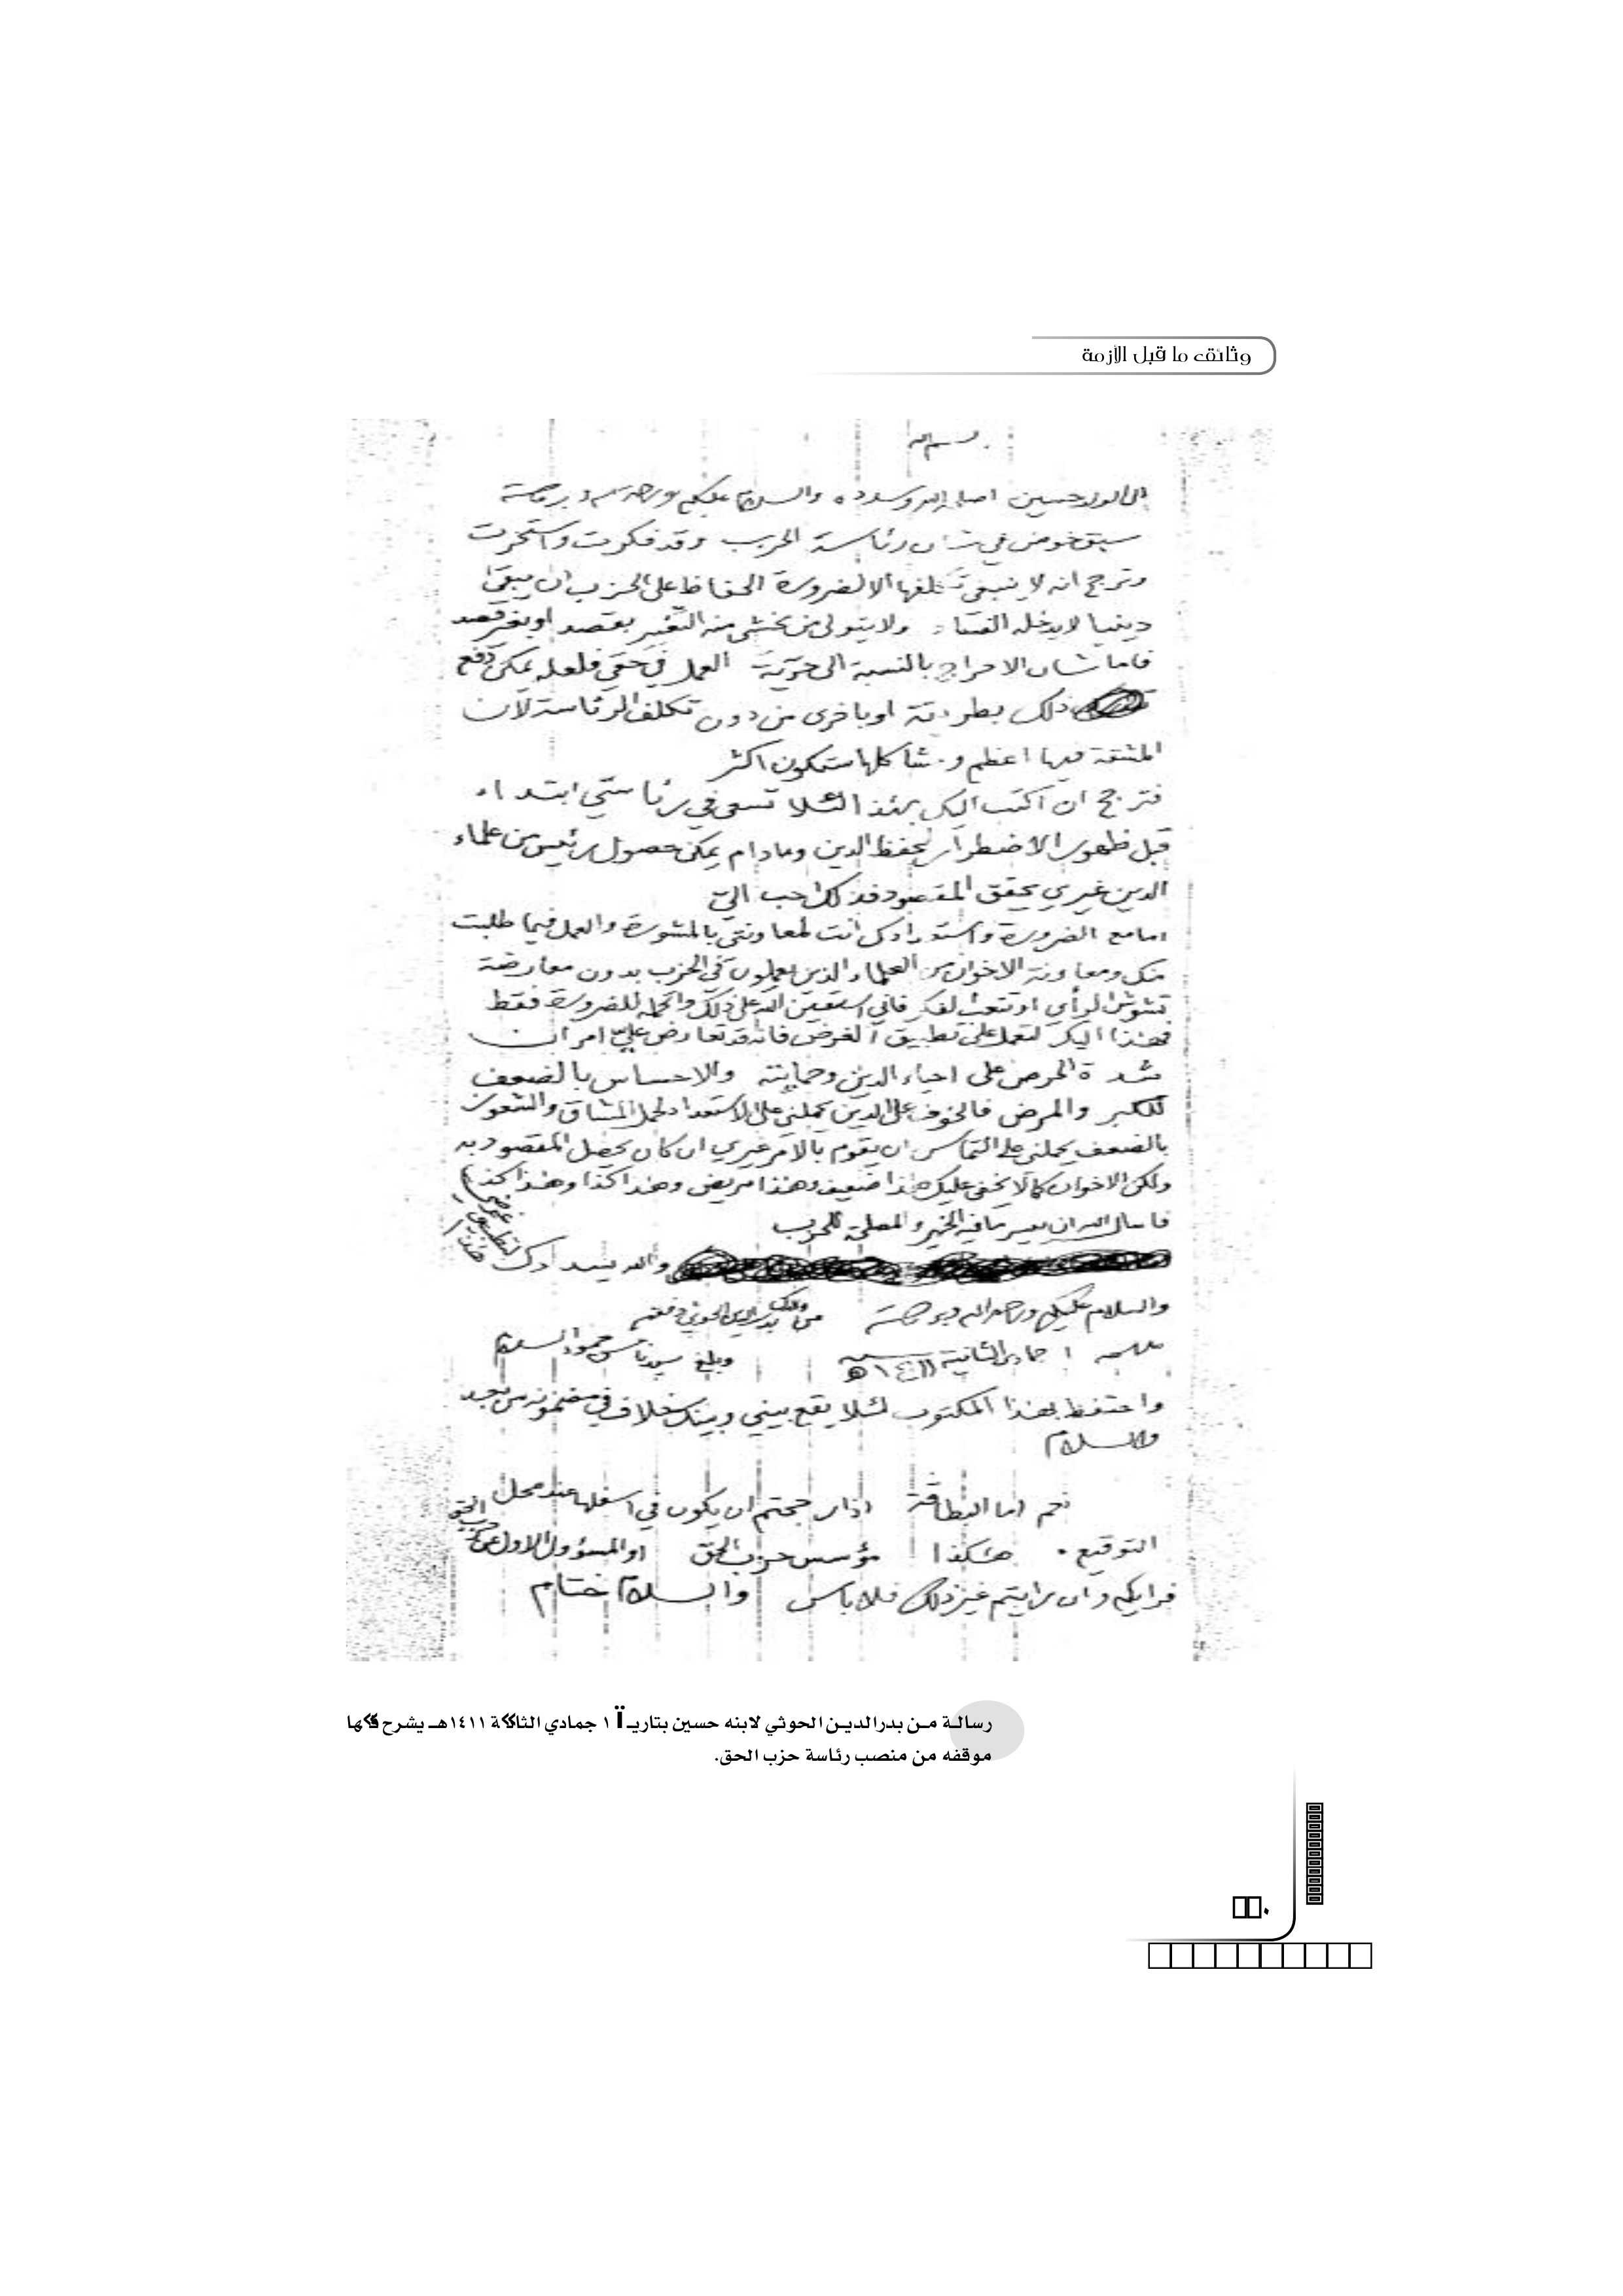 وثائق ما قبل الأزمة
بسم الله
الى الولد حسين اصلحه الله وسدده والسلام عليكم ورحمة الله وبركاته
سبق خوض في شان رئاسة الحزب وقد فكرت واستخرت
وترجح انه لا ينبغي تكلفها الا لضرورة الحفاظ على الحزب ان يبقى
دينيا لا يدخله الفساد ولا يتولى من يخشى منه التغيير بقصد او بغير قصد
فاما شان الاحراج بالنسبة الى حرية العمل في حقي فلعله يمكن دفع
ذلك بطريقة او باخرى من دون تكلف الرئاسة لان
المشقة فيها اعظم ومشاكلها ستكون اكثر
فترجح ان اكتب اليك بهذا لئلا تسعى في رئاستي ابتداء
قبل ظهور الاضطرار لحفظ الدين ومادام يمكن حصول رئيس من علماء
الدين غيري يحقق المقصود فذلك احب الي
اما مع الضرورة واستعدادك انت لمعاونتي بالمشورة والعمل فيما طلبت
منك ومعاونة الاخوان من العلماء الذين يعملون في الحزب بدون معارضة
تشوش الرأي او تتعب الفكر فاني استعين الله على ذلك واتحمله للضرورة فقط
فهذا اليك لتعمل على تطبيق الغرض فانه قد تعارض علي امران
شدة الحرص على احياء الدين وحمايته والاحساس بالضعف
للكبر والمرض فالخوف على الدين يحملني على الاستعداد لحمل المشاق والشعور
بالضعف يحملني على التماس ان يقوم بالامر غيري ان كان يحصل المقصود به
ولكن الاخوان كما لا يخفى عليك هذا ضعيف وهذا مريض وهذا كذا وهذا كذا
فاسال الله ان ييسر ما فيه الخير والمصلحة للحزب
والله يسددك لتطبيق غرضي هذا
والسلام عليكم ورحمة الله وبركاته من والدك بدرالدين الحوثي وفقه الله
١ جمادى الثانية سنة ١٤١١هـ وبلغ سيدنا حمود السلام
واحتفظ بهذا المكتوب لئلا يقع بيني وبينك خلاف في مضمونه من بعد
والسلام
نعم اما البطاقة اذا رجحتم ان يكون في اسفلها عند محل
التوقيع. هكذا مؤسس حزب الحق او المسؤول الاول عن حزب الحق
فرايكم وان رايتم غير ذلك فلا باس والسلام ختام
رسالة من بدرالدين الحوثي لابنه حسين بتاريـ ١ جمادي ١٤١١هـ يشرح
موقفه من منصب رئاسة حزب الحق.